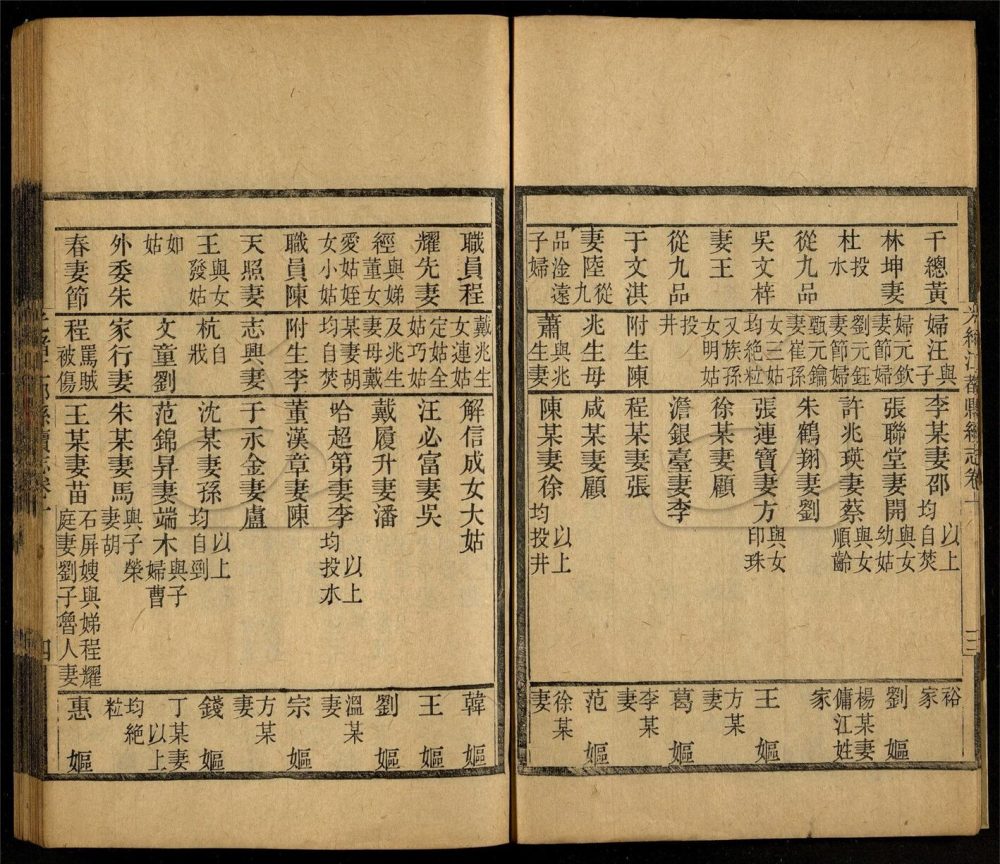 千總黃
林坤妻
杜投水
從九品
吳文梓
妻王
從九品
于文淇
妻陸從九
品淦遠
子婦
婦汪與子
婦元欽
妻節婦
劉元鈺
妻節婦
甄元鑰
妻崔孫
女三姑
均絶粒
又族孫
女明姑
投井
附生陳
兆生母
蕭與兆生妻
李某妻邵以上均自焚
張聯堂妻開與女幼姑
許兆瑛妻蔡與女順齡
朱鶴翔妻劉
張連寶妻方與女印珠
徐某妻顧
澹銀臺妻李
程某妻張
咸某妻顧
陳某妻徐以上均投井
裕家
劉嫗
楊某妻
傭江姓
家
王嫗
方某妻
葛嫗
李某妻
范嫗
徐某妻
光緒江都縣續志卷十
三
職員程
耀先妻
經與娣董女
愛姑姪
女小姑
職員陳
天照妻
王與女發姑
如姑
外委朱
春妻節
戴兆生
女連姑
定姑全
姑巧姑
及兆生
妻母戴
某妻胡
均自焚
附生李
志興妻
杭自戕
文童劉
家行妻
程罵賊被傷
解信成女大姑
汪必富妻吳
戴履升妻潘
哈超第妻李以上均投水
董漢章妻陳
于永金妻盧
沈某妻孫以上均自剄
范錦昇妻端木與子婦曹
朱某妻馬與子榮妻胡
王某妻苗石屏嫂與娣程耀
庭妻劉子魯人妻
韓嫗
王嫗
劉嫗
溫某妻
宗嫗
方某妻
錢嫗
丁某妻
以上
均絶
粒
惠嫗
四